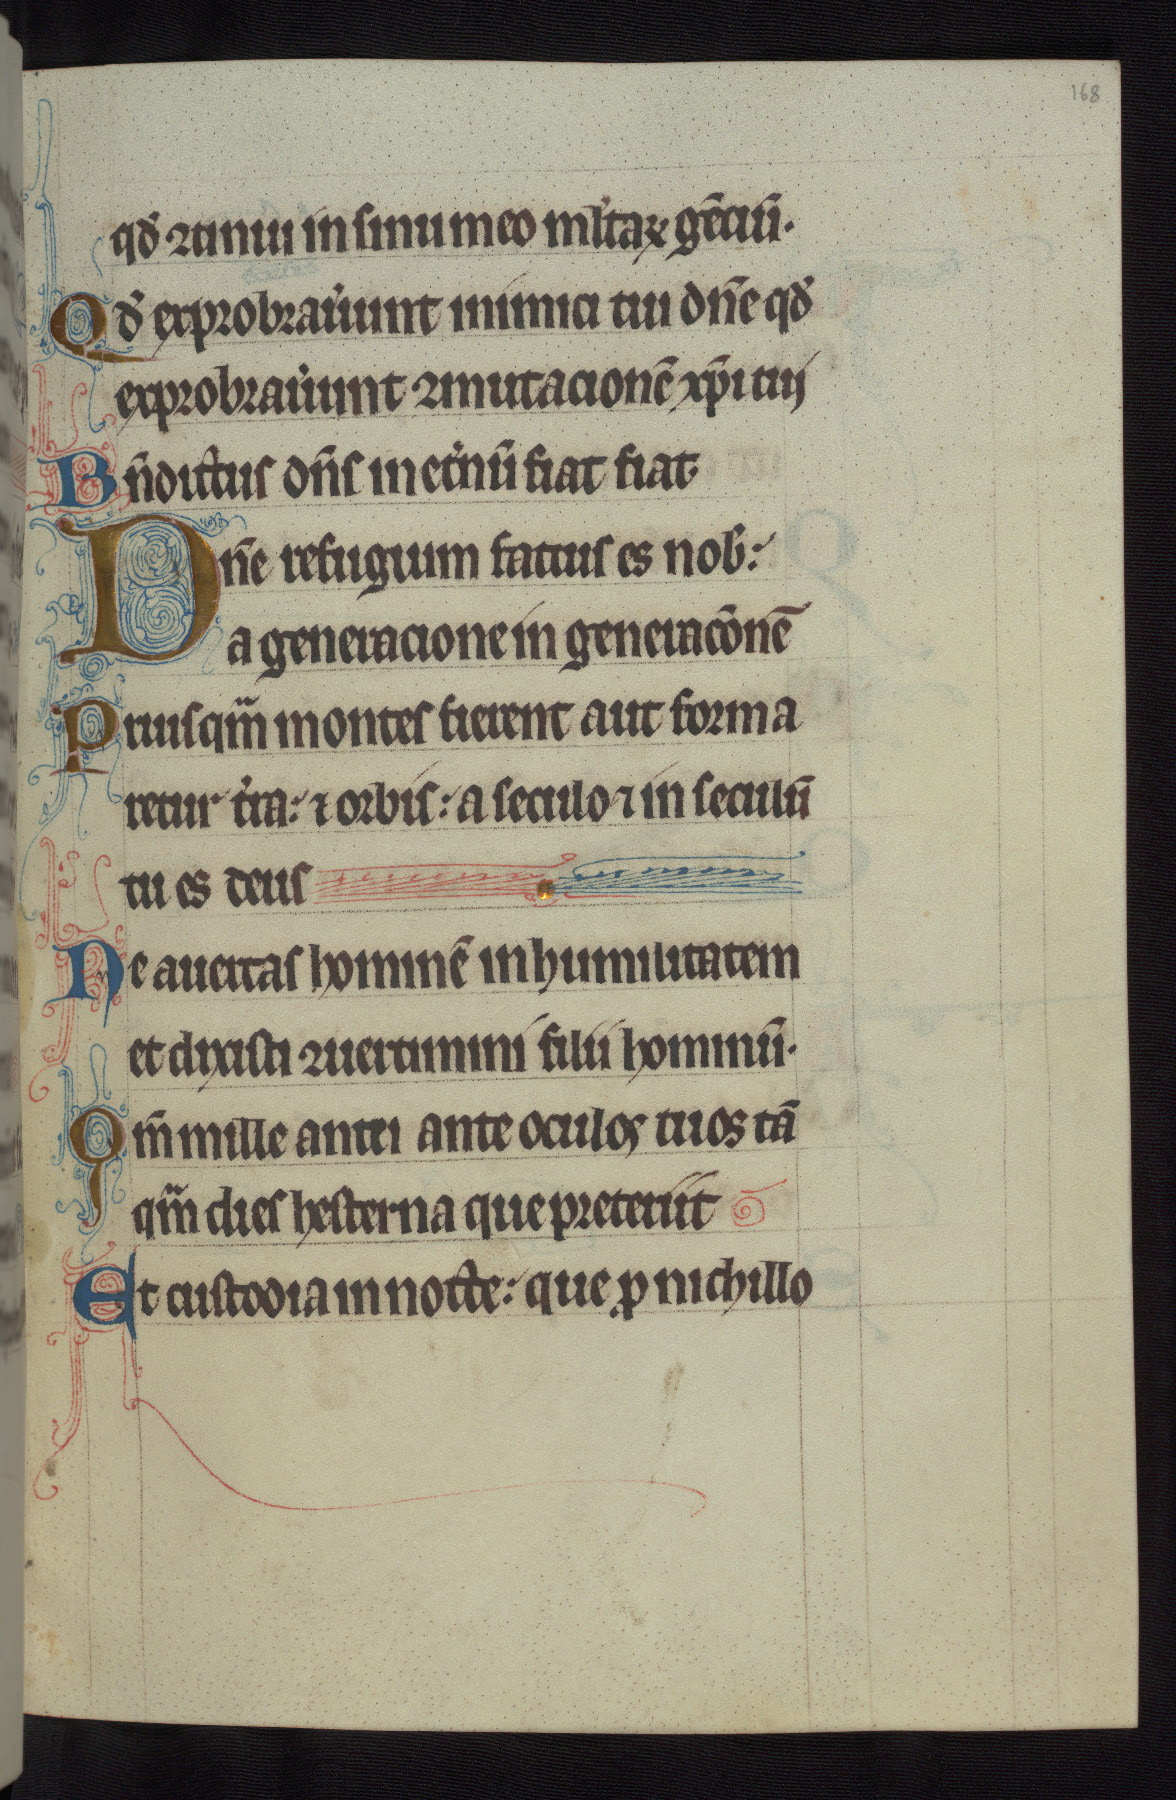 168
qd̄ ꝯtinui in sinu meo ml̄taꝝ gēciū.
Qd̄ exprobraūunt inimici tui dn̄e qd̄
exprobraūunt ꝯmutacionē xp̄i tui
Bn̄dictus dn̄s in et̄nū fiat fiat
Dn̄e refugium factus es nob̄:
a generacione in generacōnē
Priusqm̄ montes fierent aut forma
retur t̄ra: ⁊ orbis: a seculo ⁊ in seculū
tu es deus
Ne auertas hominē in humilitatem
et dixisti ꝯuertimini filii hominū.
Qm̄ mille anni ante oculos tuos tā
qm̄ dies hesterna que preteriit
Et custodia in nocte: que ꝓ nichillo